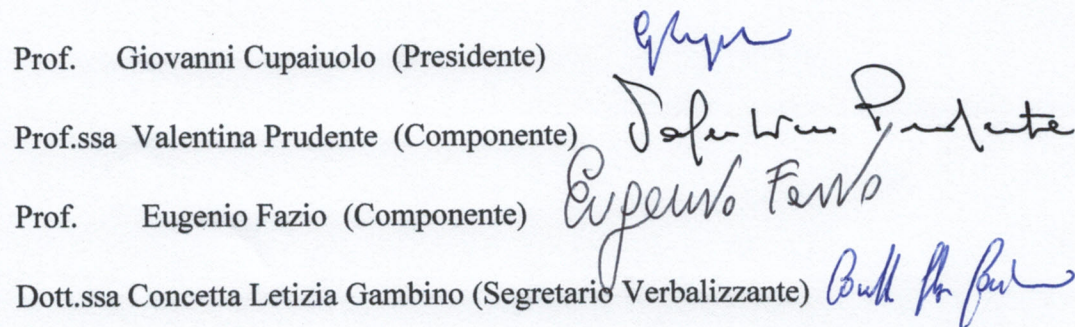 Prof. Giovanni Cupaiuolo (Presidente)
Prof.ssa Valentina Prudente (Componente) Valentina Prudente
Prof. Eugenio Fazio (Componente) Eugenio Fazio
Dott.ssa Concetta Letizia Gambino (Segretario Verbalizzante)